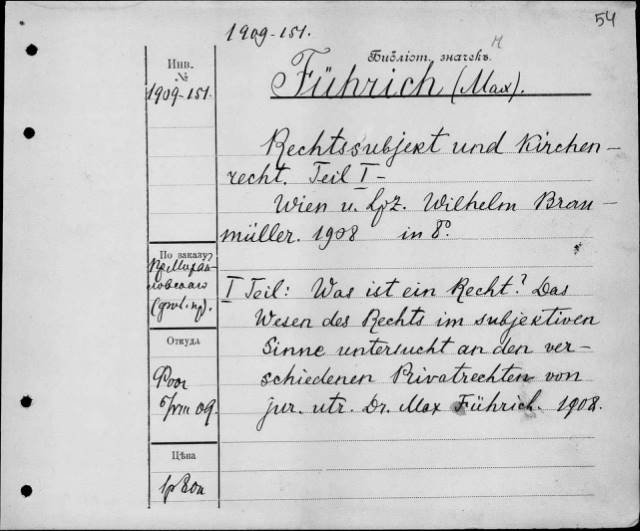 54
1909-151.
Библіот. значекъ
Инв.
№
1909-151.
Führich (Max).
Rechtssubjekt und Kirchen-
recht. Teil I-
Wien u. Lpz. Wilhelm Brau-
müller. 1908 in 8°.
По заказу
I Teil: Was ist ein Recht? Das
Wesen des Rechts im subjektiven
Sinne untersucht an den ver-
schiedenen Privatrechten von
jur. utr. Dr. Max Führich. 1908.
Откуда
09.
Цѣна